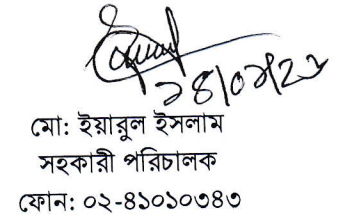 ২৪/০৯/২৩
মো: ইয়ারুল ইসলাম
সহকারী পরিচালক
ফোন: ০২-৪১০১০৩৪৩